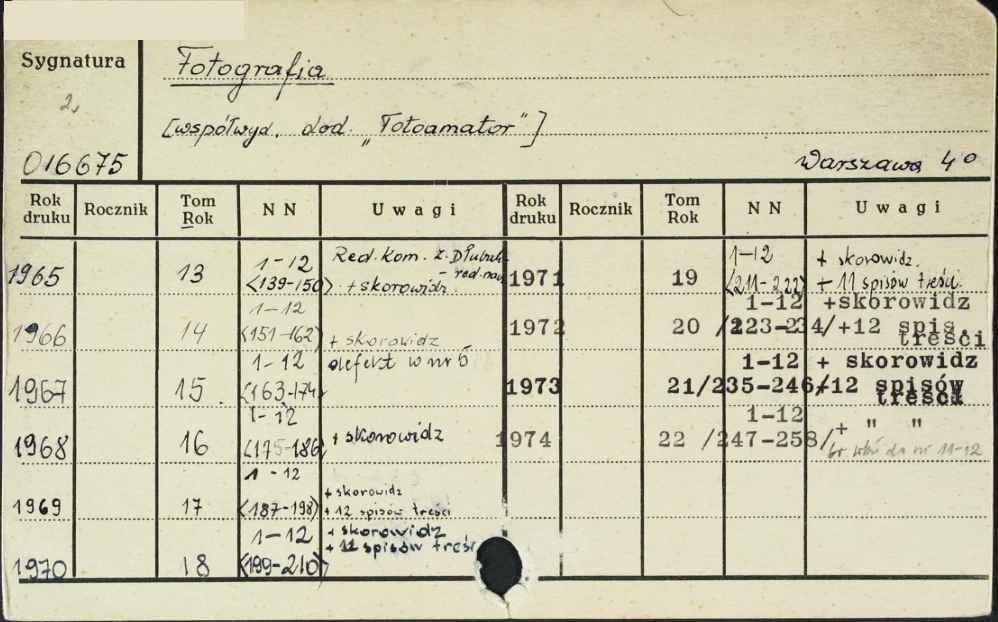 Sygnatura
Fotografia
2,
[współwyd. dod. „Fotoamator"]
016675
Warszawa 4°
Rok druku Rocznik Tom Rok NN Uwagi Rok druku Rocznik Tom Rok NN Uwagi
1965 13 1-12 <139-150> Red. Kom. Z. - red. + skorowidz
1966 14 1-12 <151-162> + skorowidz
1967 15. 1-12 <163-174> defekt w nr 6
1968 16 1-12 <175-186> + skorowidz
1969 17 1-12 <187-198> + skorowidz + 12 spisów treści
1970 18 1-12 <199-210> + skorowidz + 11 spisów treści
1971 19 1-12 <211-222> + skorowidz. + 11 spisów treści
1972 20 1-12 /223-234/ +skorowidz +12 spis. treści
1973 21 1-12 /235-246/ + skorowidz +12 spisów treści
1974 22 1-12 /247-258/ + " " do nr 11-12